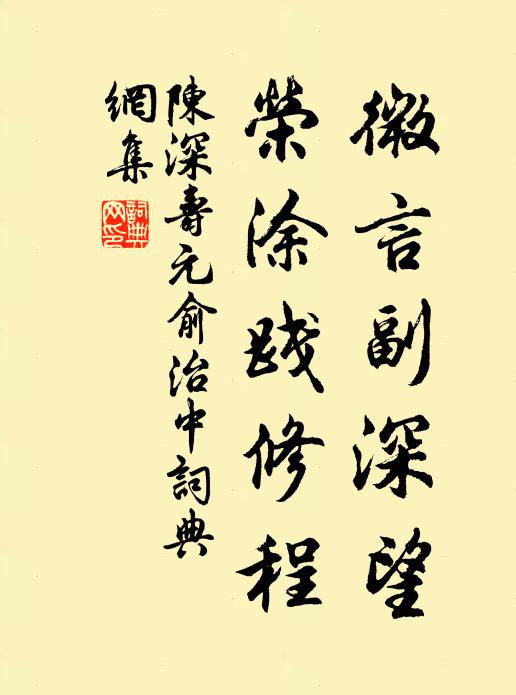 微言副深望
榮涂踐修程
陳深壽元俞治中詞典
網集
詞典网印